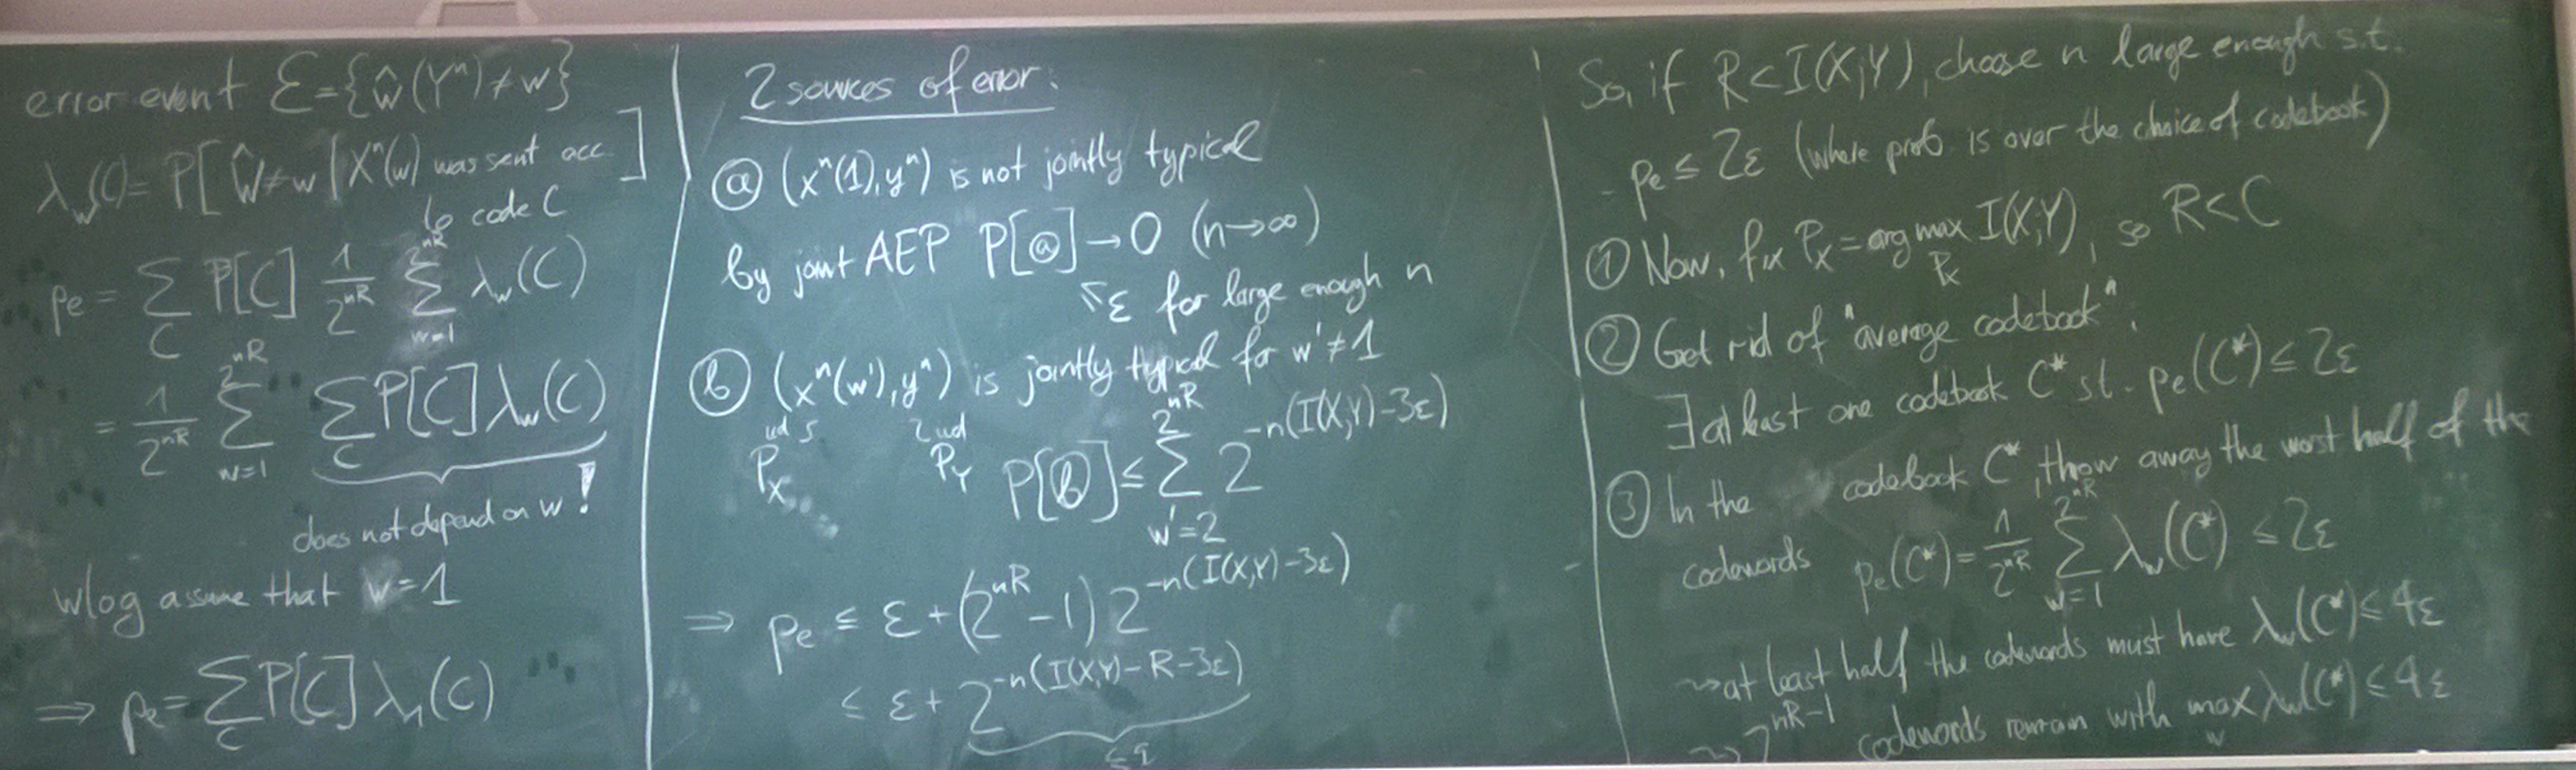 error event ℰ={ŵ(Yⁿ)≠w}
λ_w(C)= P[Ŵ≠w | Xⁿ(w) was sent acc.
to code C ]
p_e = Σ_C P[C] 1/2^{nR} Σ_{w=1}^{2^{nR}} λ_w(C)
= 1/2^{nR} Σ_{w=1}^{2^{nR}} Σ_C P[C] λ_w(C)
does not depend on w!
wlog assume that w=1
⇒ p_e = Σ_C P[C] λ_1(C)
2 sources of error:
ⓐ (xⁿ(1),yⁿ) is not jointly typical
by joint AEP P[ⓐ]→0 (n→∞)
≤ε for large enough n
ⓑ (xⁿ(w'),yⁿ) is jointly typical for w'≠1
P_X P_Y P[ⓑ] ≤ Σ_{w'=2}^{2^{nR}} 2^{-n(I(X;Y)-3ε)}
⇒ p_e ≤ ε+(2^{nR}-1) 2^{-n(I(X;Y)-3ε)}
≤ ε+ 2^{-n(I(X;Y)-R-3ε)}
So, if R<I(X;Y), choose n large enough s.t.
p_e ≤ 2ε (where prob. is over the choice of codebook)
① Now, fix P_X = arg max_{P_X} I(X;Y), so R<C
② Get rid of "average codebook".
∃ at least one codebook C* st. p_e(C*) ≤ 2ε
③ In the codebook C*, throw away the worst half of the
codewords p_e(C*)= 1/2^{nR} Σ_{w=1}^{2^{nR}} λ_w(C*) ≤2ε
⇝ at least half the codewords must have λ_w(C*) ≤ 4ε
⇝ 2^{nR-1} codewords remain with max_w λ_w(C*) ≤ 4ε